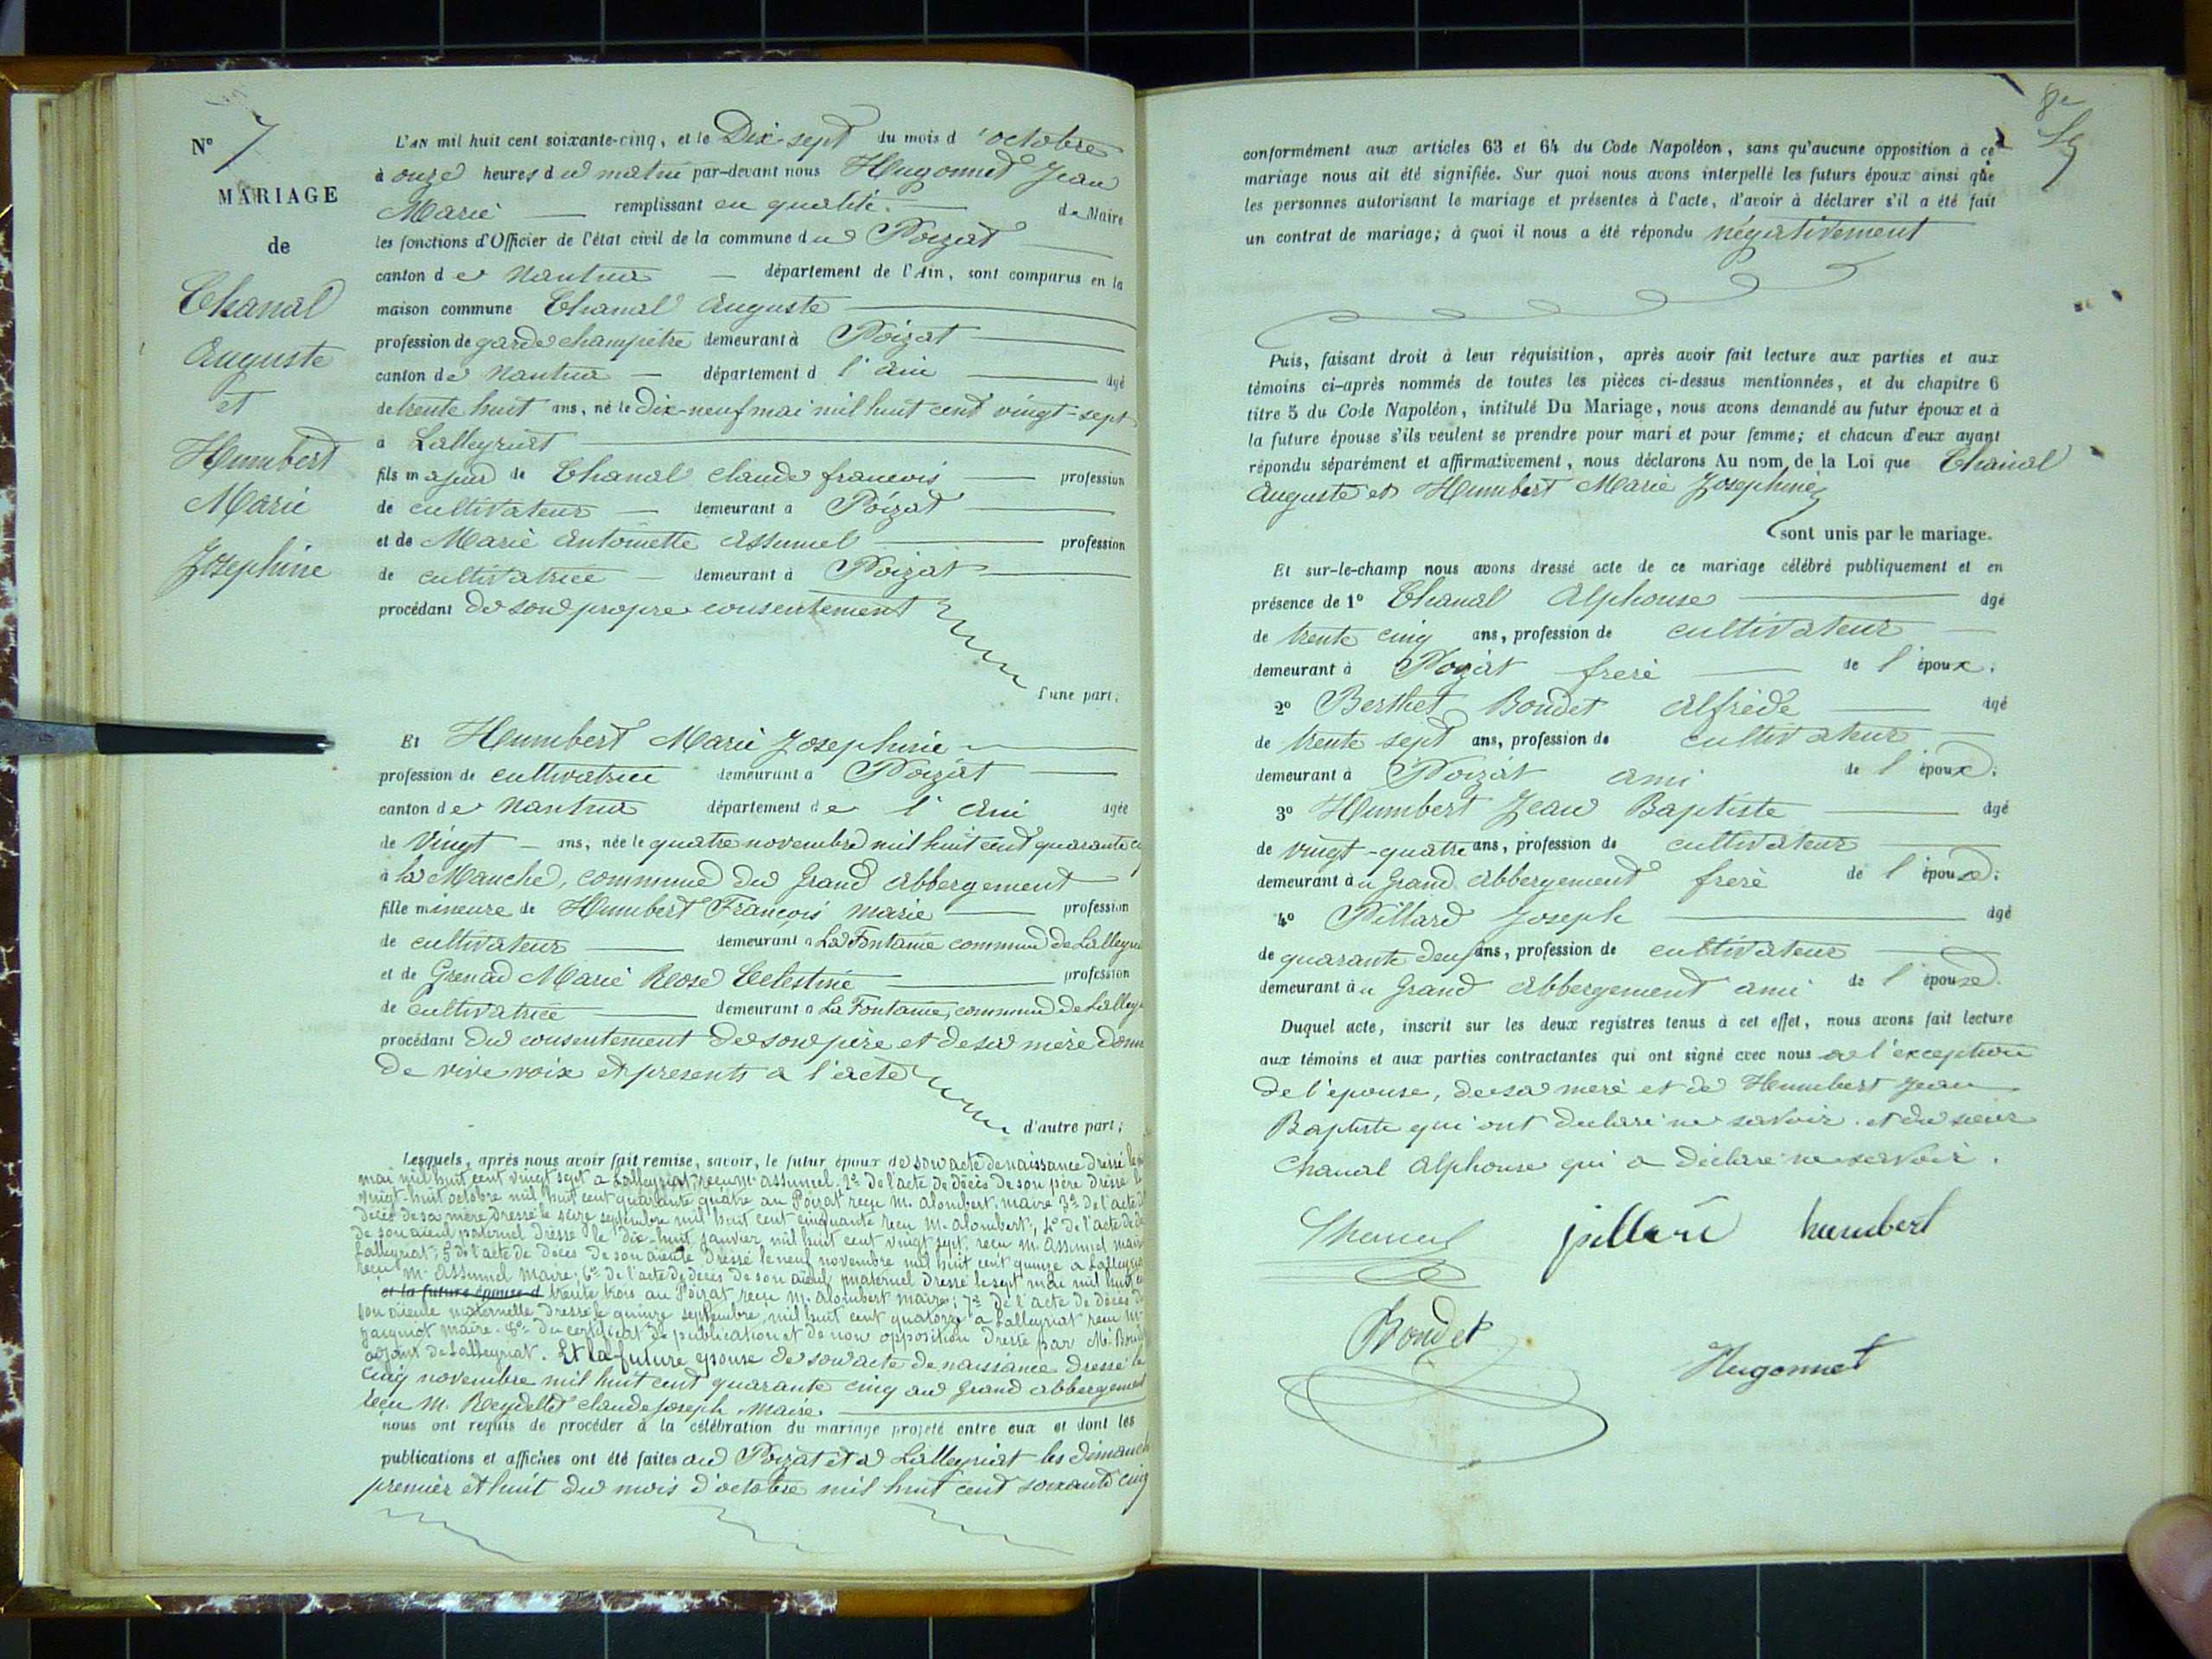 N° 7
MARIAGE
de
Chanal
Auguste
et
Humbert
Marie
Josephine
L'AN mil huit cent soixante-cinq, et le Dix-sept du mois d'octobre
à onze heures du matin par-devant nous Hugonnet Jean
Marie — remplissant en qualité de Maire
les fonctions d'Officier de l'état civil de la commune du Poizat
canton de Nantua — département de l'Ain, sont comparus en la
maison commune Chanal Auguste
profession de garde champêtre demeurant à Poizat
canton de Nantua — département d l'ain — âgé
de trente huit ans, né le Dix-neuf mai mil huit cent vingt-sept
à Lalleyriat
fils majeur de Chanal claude francois — profession
de cultivateur — demeurant à Poizat
et de Marie Antoinette Assumel — profession
de cultivatrice — demeurant à Poizat
procédant de son propre consentement
d'une part;
Et Humbert Marie Josephine
profession de cultivatrice demeurant à Poizat
canton de Nantua département de l'Ain âgée
de Vingt — ans, née le quatre novembre mil huit cent quarante
à la Manche, commune du Grand Abbergement
fille mineure de Humbert François marie — profession
de cultivateur — demeurant à La Fontaine commune de Lalleyri
et de Grenad Marie Rose Celestine — profession
de cultivatrice — demeurant à La Fontaine, commune de Lalley
procédant du consentement de son père et de sa mère donn
de vive voix et presents a l'acte
d'autre part;
Lesquels, après nous avoir fait remise, savoir, le futur époux de son acte de naissance dressé le
mai mil huit cent vingt sept a Lalleyriat, reçu M. assumel. 2° de l'acte de décès de son père dressé le
vingt-huit octobre mil huit cent quarante quatre au Poizat reçu M. Alombert, maire 3° de l'acte de
décès de sa mère dressé le seize septembre mil huit cent cinquante reçu M. Alombert; 4° de l'acte de dé
de son aieul paternel dressé le dix-huit janvier mil huit cent vingt sept, reçu M. Assumel maire
Lalleyriat; 5° de l'acte de décès de son aieule dressé le neuf novembre mil huit cent quinze a Lalleyriat
reçu M. Assumel Maire; 6° de l'acte de décès de son aïeul maternel dressé le sept mai mil huit ce
et la future épouse d trente trois au Poizat reçu M. Alombert maire; 7° de l'acte de décès de
son aïeule maternelle dressé le quinze septembre, mil huit cent quatorze a Lalleyriat reçu M.
maire. 8° du certificat de publication et de non opposition dressé par M. Bond
adjoint de Lalleyriat. Et la future epouse de son acte de naissance dressé le
Cinq novembre mil huit cent quarante cinq au Grand abbergement
reçu M. Reydellet claude joseph Maire.
nous ont requis de procéder à la célébration du mariage projeté entre eux et dont les
publications et affiches ont été faites au Poizat et à Lalleyriat les dimanch
premier et huit du mois d'octobre mil huit cent soixante cinq
conformément aux articles 63 et 64 du Code Napoléon, sans qu'aucune opposition à ce
mariage nous ait été signifiée. Sur quoi nous avons interpellé les futurs époux ainsi que
les personnes autorisant le mariage et présentes à l'acte, d'avoir à déclarer s'il a été fait
un contrat de mariage; à quoi il nous a été répondu négativement
Puis, faisant droit à leur réquisition, après avoir fait lecture aux parties et aux
témoins ci-après nommés de toutes les pièces ci-dessus mentionnées, et du chapitre 6
titre 5 du Code Napoléon, intitulé Du Mariage, nous avons demandé au futur époux et à
la future épouse s'ils veulent se prendre pour mari et pour femme; et chacun d'eux ayant
répondu séparément et affirmativement, nous déclarons Au nom de la Loi que Chanal
Auguste et Humbert Marie Josephine
sont unis par le mariage.
Et sur-le-champ nous avons dressé acte de ce mariage célébré publiquement et en
présence de 1° Chanal Alphonse — âgé
de trente cinq ans, profession de cultivateur
demeurant à Poizat frere — de l'époux.
2° Berthet Bondet Alfrède — âgé
de trente sept ans, profession de cultivateur
demeurant à Poizat ami de l'époux.
3° Humbert Jean Baptiste — âgé
de vingt-quatre ans, profession de cultivateur
demeurant au Grand Abbergement frere de l'épouse.
4° Pillard Joseph — âgé
de quarante deux ans, profession de cultivateur
demeurant au Grand Abbergement ami de l'épouse.
Duquel acte, inscrit sur les deux registres tenus à cet effet, nous avons fait lecture
aux témoins et aux parties contractantes qui ont signé avec nous a l'exception
de l'épouse, de sa mere et de Humbert Jean
Baptiste qui ont declaré ne savoir. et du sieur
Chanal Alphonse qui a déclaré ne savoir.
Chanal pillard humbert
Bondet
Hugonnet